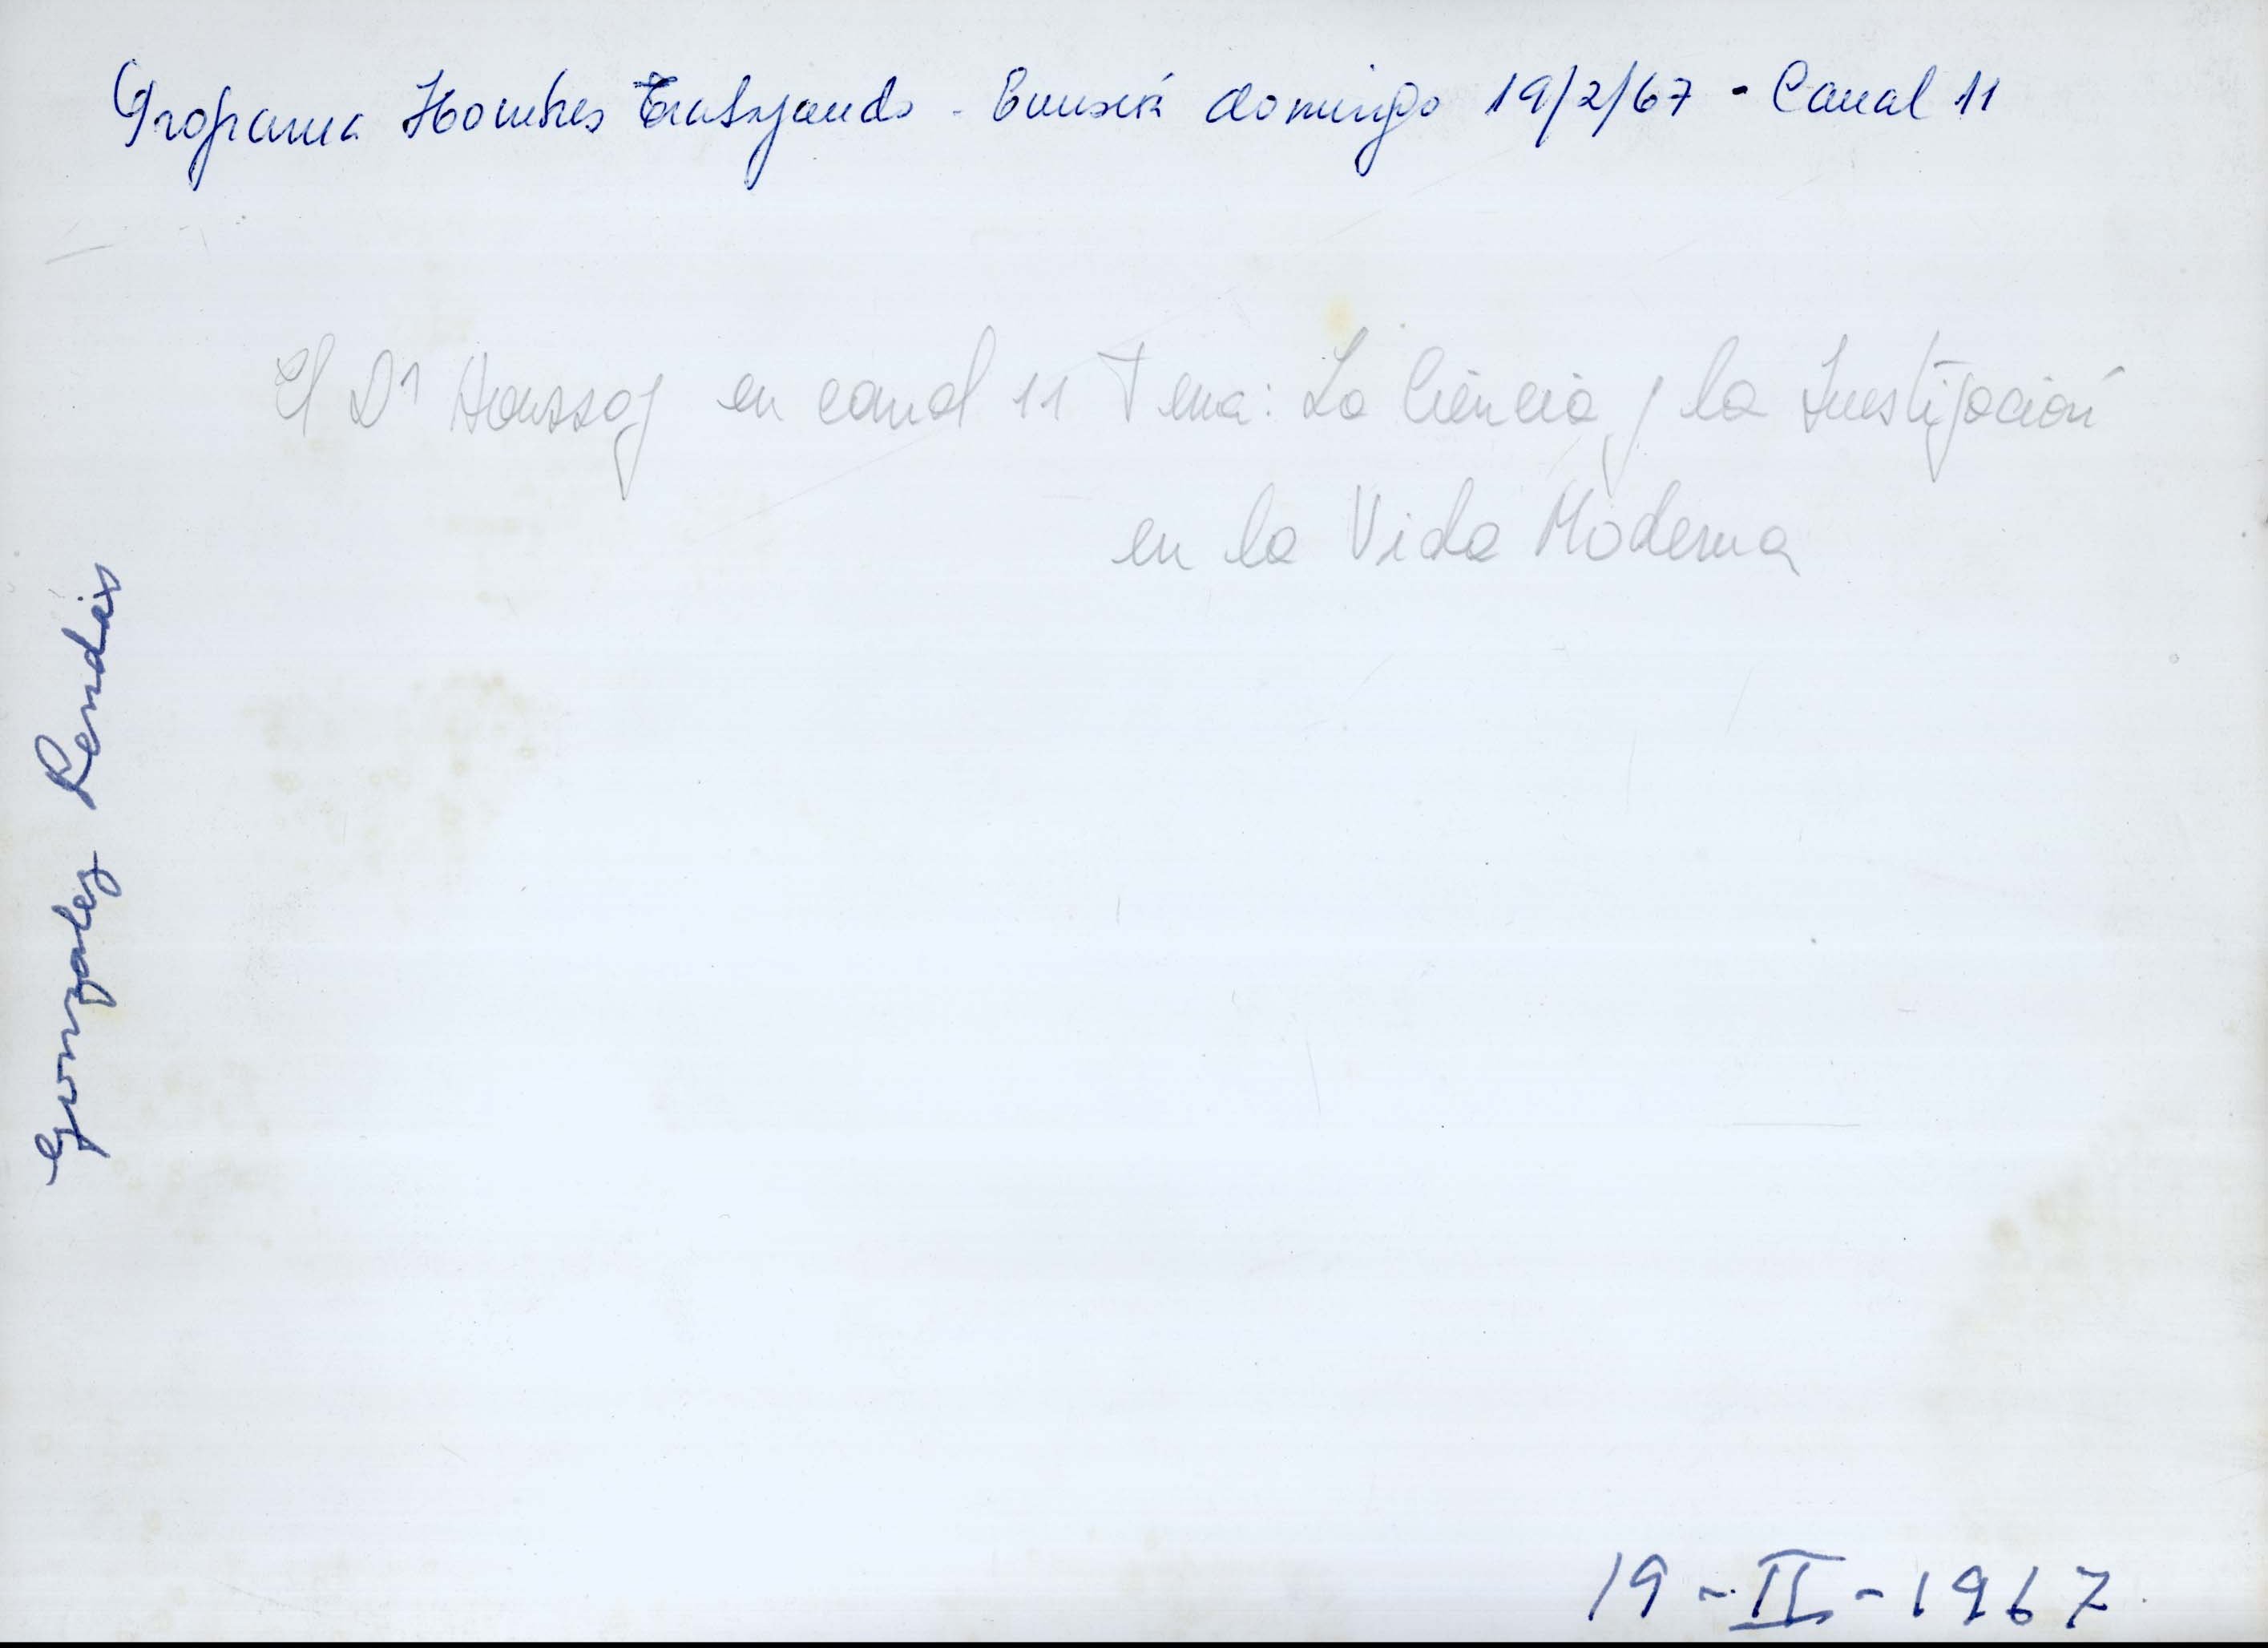 Programa Hombres Trabajando - Emisión domingo 19/2/67 - Canal 11
El Dr Houssay en canal 11 Tema: La Ciencia y la Investigación
en la Vida Moderna
Gonzalez Rendis
19-II-1967